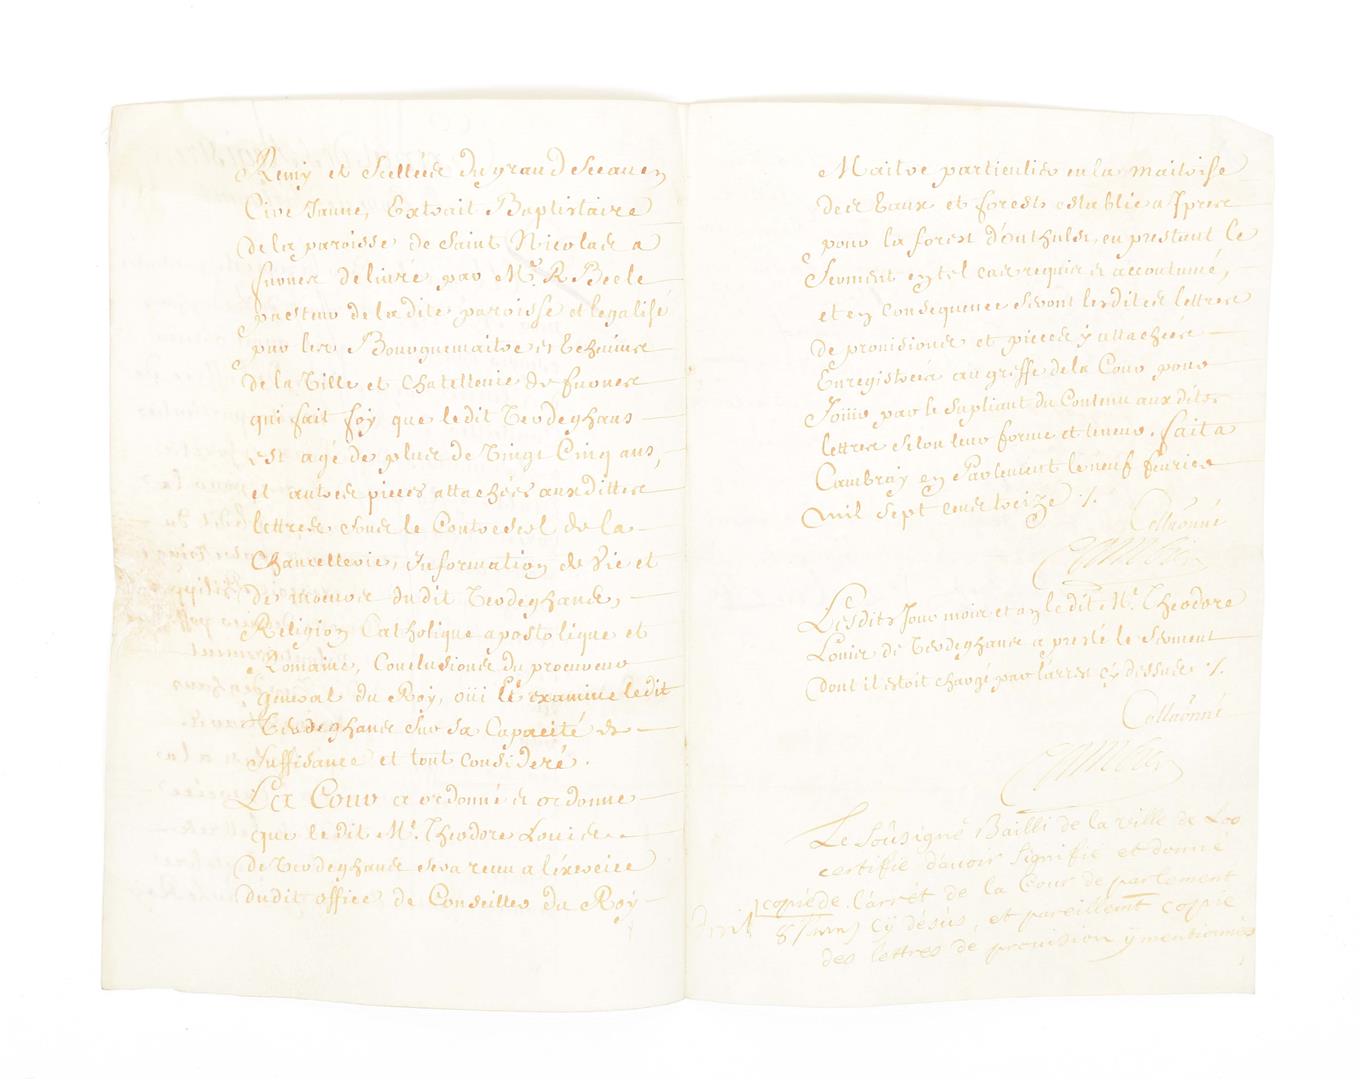 Remy et Scellées du grand Sceau en
Cire Jaune, Extrait Baptistaire
de la paroisse de Saint Nicolas a
furnes délivré par Mr. R. Beele
pasteur de ladite paroisse et legalisé
par les Bourguemaitre et Echevins
de la Ville et Chatellenie de furnes
qui fait foy que ledit Terdeghans
est agé de plus de Vingt Cinq ans,
et autres pieces attachées auxdittes
lettres sous le Contrescel de la
Chancellerie, Information de Vie et
de moeurs dudit Terdeghans,
Religion Catholique apostolique et
Romaine, Conclusions du procureur
general du Roy, oüi et examiné ledit
Terdeghans sur sa Capacité et
suffisance et tout consideré.
La Cour a ordonné et ordonne
que ledit Mr. Theodore Louis
de Terdeghans sera receu a l'exercice
dudit office de Conseiller du Roy
Maitre particulier en la maitrise
des Eaux et forests establie a Ipres
pour la forest d'outhulst, en prestant le
Serment en tel cas requis et accoutumé,
et en Consequence seront lesdites lettres
de provisions et pieces y attachées
Enregistrées au greffe de la Cour pour
Jouir par le supliant du Contenu auxdites
lettres selon leur forme et teneur. fait a
Cambray en Parlement le neuf feurier
mil sept cens treize ./.
Collaõnné
Lesdits Jour mois et an ledit Mr. Theodore
Louis de Terdeghans a presté le serment
dont il estoit chargé par l'arrest cy dessus ./.
Collaõnné
Le soûsigné Bailli de la ville de Loo
certifie d'avoir signifié et donné
copie de l'arrêt de la Cour de parlement
cÿ désus, et pareillemt copie
des lettres de provision ÿ mentionnés